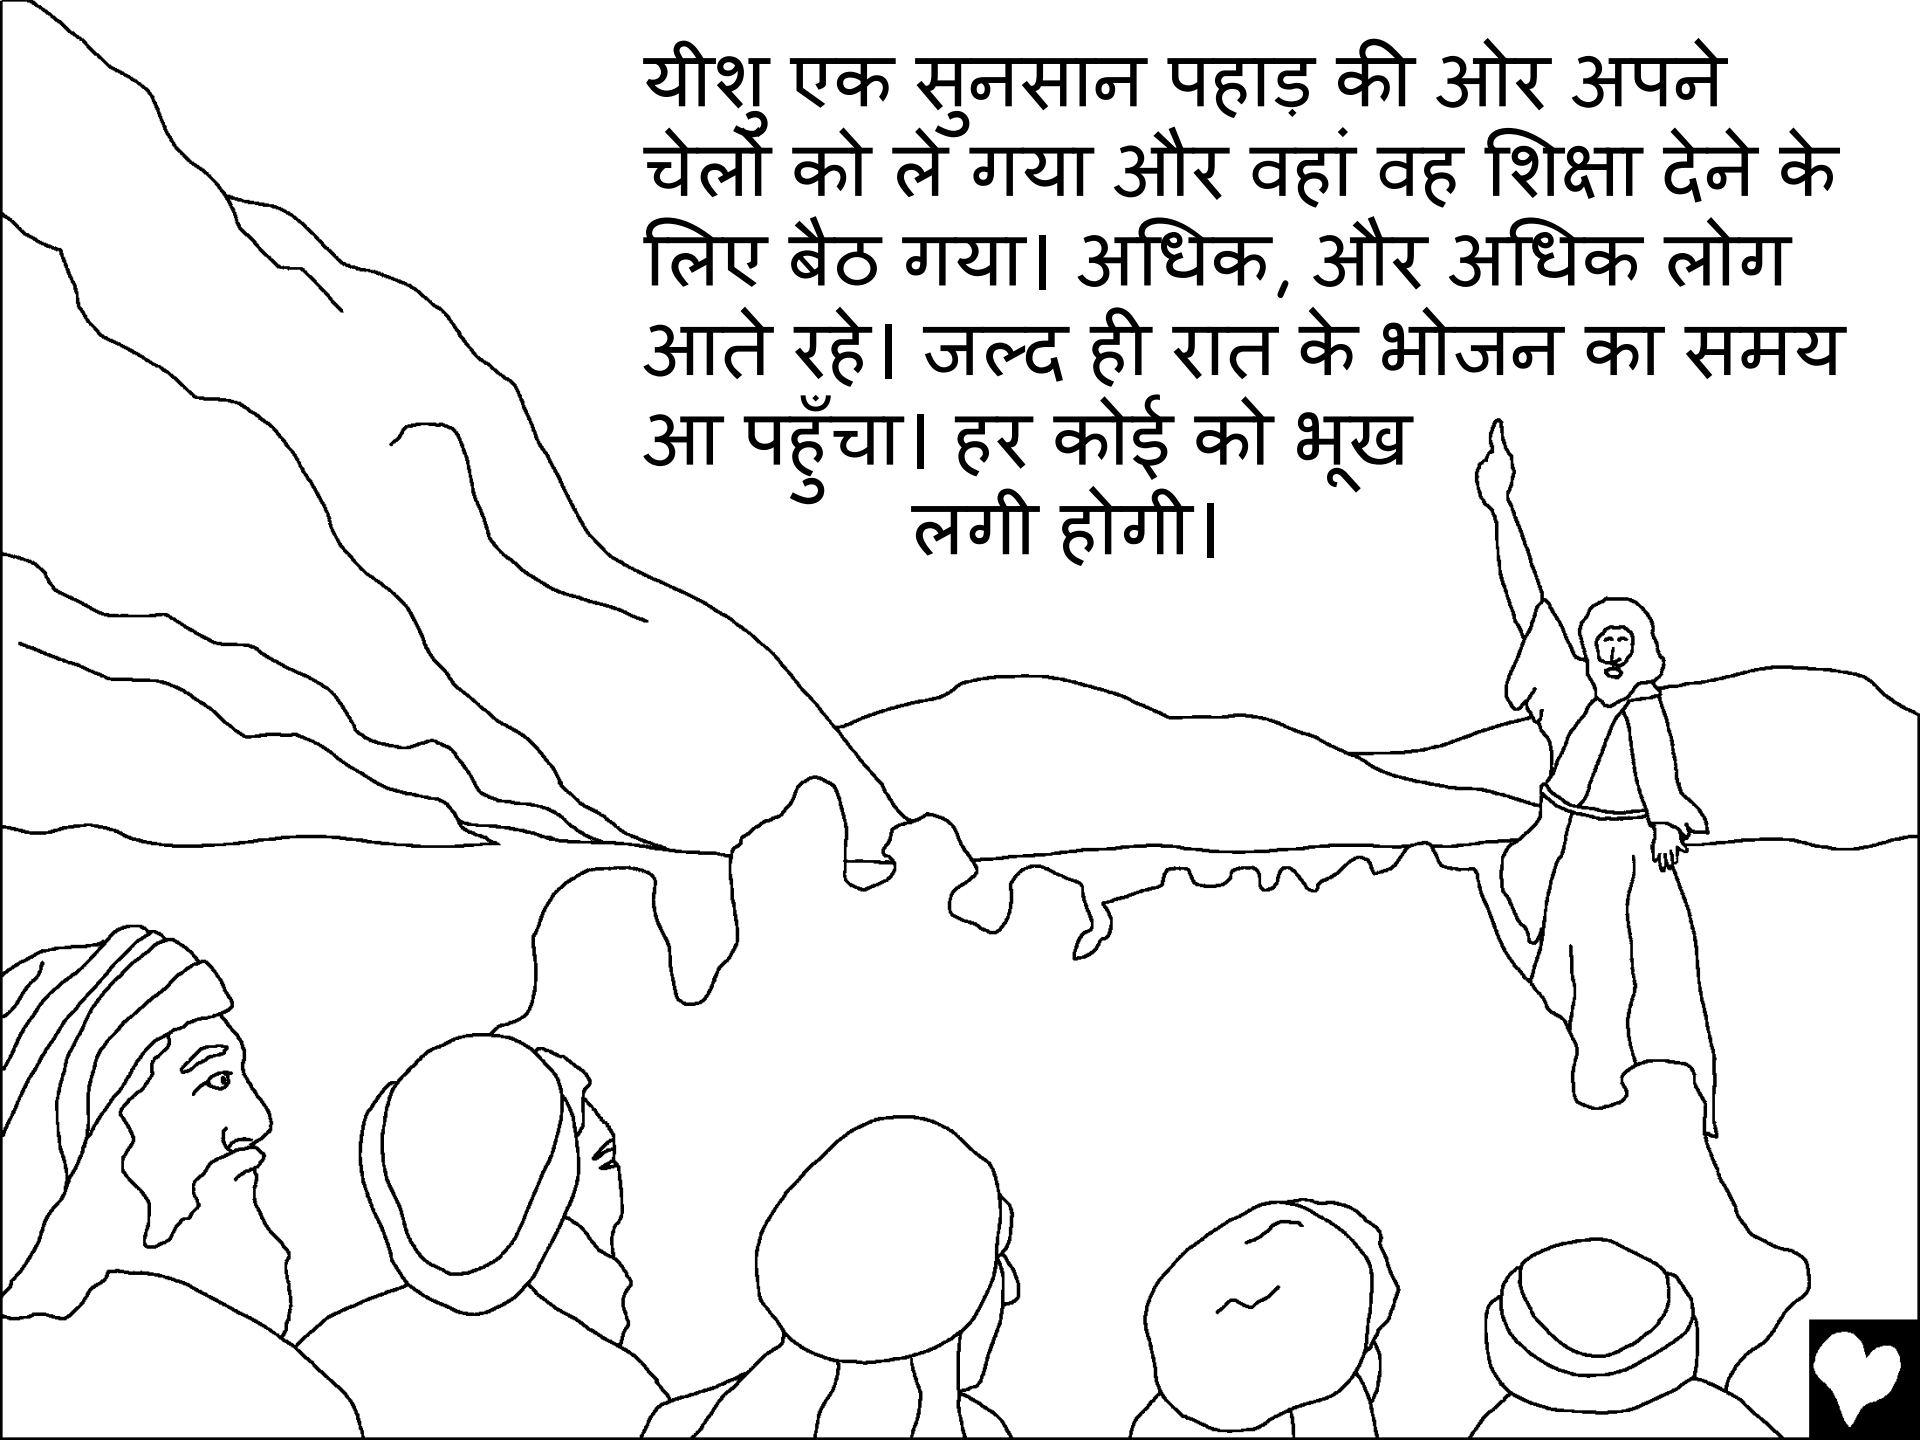 यीशु एक सुनसान पहाड़ की ओर अपने
चेलो को ले गया और वहां वह शिक्षा देने के
लिए बैठ गया। अधिक, और अधिक लोग
आते रहे। जल्द ही रात के भोजन का समय
आ पहुँचा। हर कोई को भूख
लगी होगी।